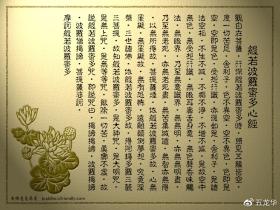 般若波羅蜜多心經
觀自在菩薩。行深般若波羅蜜多時。照見五蘊皆空。
度一切苦厄。舍利子。色不異空。空不異色。色即是
空。空即是色。受想行識。亦復如是。舍利子。是諸
法空相。不生不滅。不垢不淨。不增不減。是故空中
無色。無受想行識。無眼耳鼻舌身意。無色聲香味觸
法。無眼界。乃至無意識界。無無明。亦無無明盡。
乃至無老死。亦無老死盡。無苦集滅道。無智亦無得。
以無所得故。菩提薩埵。依般若波羅蜜多故。心無
罣礙。無罣礙故。無有恐怖。遠離顛倒夢想。究竟涅
槃。三世諸佛。依般若波羅蜜多故。得阿耨多羅三藐
三菩提。故知般若波羅蜜多。是大神咒。是大明咒。
是無上咒。是無等等咒。能除一切苦。真實不虛。故
說般若波羅蜜多咒。即說咒曰。揭諦揭諦。波羅揭諦
。波羅僧揭諦。菩提薩婆訶。
摩訶般若波羅蜜多
@五龙华